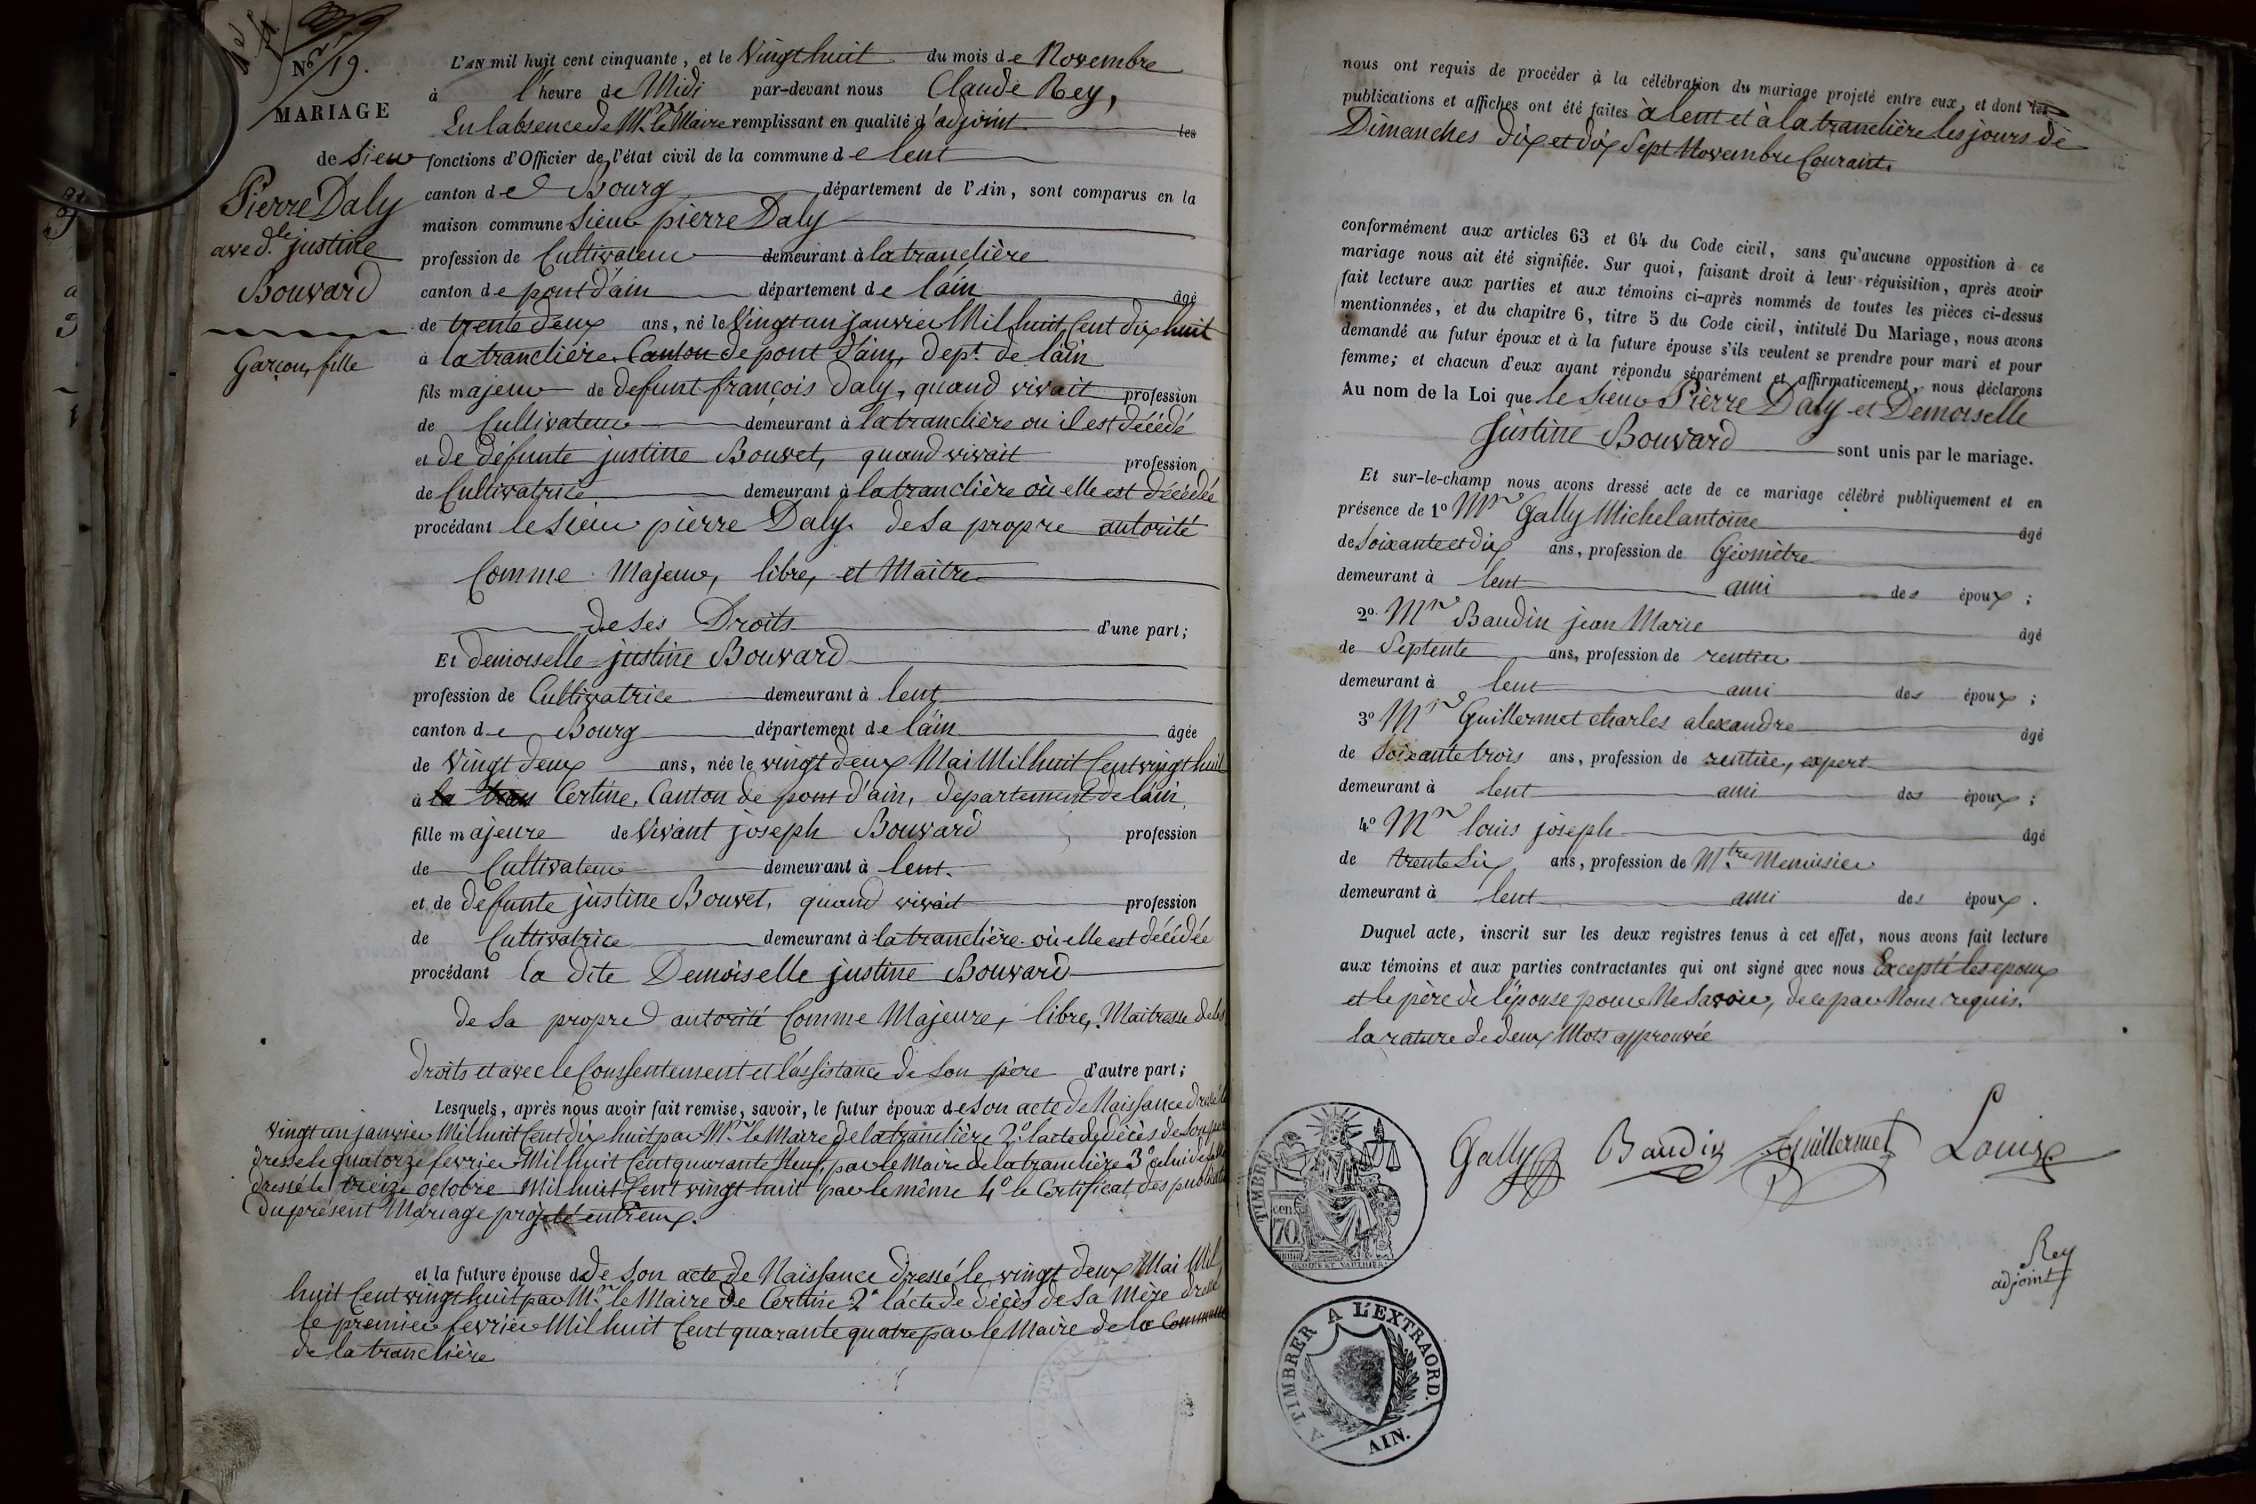 Nº 19.
MARIAGE
de Sieur
Pierre Daly
avec d.lle justine
Bouvard
Garçon, fille
L'AN mil huit cent cinquante, et le Vingt huit du mois de Novembre
à l'heure de Midi par-devant nous Claude Rey,
En l'absence de Mr. le Maire remplissant en qualité d'adjoint les
fonctions d'Officier de l'état civil de la commune de lent
canton de Bourg département de l'Ain, sont comparus en la
maison commune Sieur pierre Daly
profession de Cultivateur demeurant à la tranclière
canton de pont d'ain département de l'ain âgé
de trente deux ans, né le Vingt un janvier Mil huit Cent dix huit
à la tranclière Canton de pont d'ain, dept. de l'ain
fils majeur de defunt françois Daly, quand vivait profession
de Cultivateur demeurant à la tranclière ou il est décédé
et de défunte justine Bouvet, quand vivait profession
de Cultivatrice demeurant à la tranclière où elle est décédée
procédant le Sieur pierre Daly de sa propre autorité
Comme Majeur, libre, et Maître
de ses Droits d'une part;
Et demoiselle justine Bouvard
profession de Cultivatrice demeurant à lent
canton de Bourg département de l'ain âgée
de Vingt deux ans, née le vingt deux Mai Mil huit Cent vingt huit
à la tran Certine, Canton de pont d'ain, departement de l'ain,
fille majeure de Vivant joseph Bouvard profession
de Cultivateur demeurant à lent.
et de defunte justine Bouvet, quand vivait profession
de Cultivatrice demeurant à la tranclière où elle est décédée
procédant la dite Demoiselle justine Bouvard
de sa propre autorité Comme Majeure, libre, Maitresse de ses
droits et avec le Consentement et l'assistance de son père d'autre part;
Lesquels, après nous avoir fait remise, savoir, le futur époux de son acte de Naissance dressé le
vingt un janvier Mil huit Cent dix huit par Mr. le Maire de la tranclière 2º l'acte de décès de son père
dressé le quatorze fevrier Mil huit Cent quarante Neuf, par le Maire de la tranclière 3º celui de sa
dressé le treize octobre Mil huit Cent vingt huit par le même 4º le Certificat des publications
du présent Mariage projeté entr'eux.
et la future épouse de de son acte de Naissance dressé le vingt deux Mai Mil
huit Cent vingt huit par Mr. le Maire de Certine 2º l'acte de décès de sa Mère dressé
le premier fevrier Mil huit Cent quarante quatre par le Maire de la Commune
de la tranclière
nous ont requis de procéder à la célébration du mariage projeté entre eux, et dont les
publications et affiches ont été faites à lent et à la tranclière les jours de
Dimanches dix et dix Sept Novembre Courant.
conformément aux articles 63 et 64 du Code civil, sans qu'aucune opposition à ce
mariage nous ait été signifiée. Sur quoi, faisant droit à leur réquisition, après avoir
fait lecture aux parties et aux témoins ci-après nommés de toutes les pièces ci-dessus
mentionnées, et du chapitre 6, titre 5 du Code civil, intitulé Du Mariage, nous avons
demandé au futur époux et à la future épouse s'ils veulent se prendre pour mari et pour
femme; et chacun d'eux ayant répondu séparément et affirmativement, nous déclarons
Au nom de la Loi que le Sieur Pierre Daly et Demoiselle
Justine Bouvard sont unis par le mariage.
Et sur-le-champ nous avons dressé acte de ce mariage célébré publiquement et en
présence de 1º Mr Gally Michel antoine âgé
de Soixante et dix ans, profession de Géomètre
demeurant à lent ami des époux;
2º. Mr Baudin jean Marie âgé
de Septente ans, profession de rentier
demeurant à lent ami des époux;
3º Mr Guillermet charles alexandre âgé
de Soixante trois ans, profession de rentier, expert
demeurant à lent ami des époux;
4º Mr louis joseph âgé
de trente Six ans, profession de M.tre Menuisier
demeurant à lent ami des époux.
Duquel acte, inscrit sur les deux registres tenus à cet effet, nous avons fait lecture
aux témoins et aux parties contractantes qui ont signé avec nous Excepté les epoux
et le père de l'épouse pour Ne savoir, de ce par Nous requis.
la rature de deux Mots approuvée
Gally Baudin Guillermet Louis
Rey
adjoint
TIMBRE
cen.
70
A TIMBRER A L'EXTRAORD.
AIN.